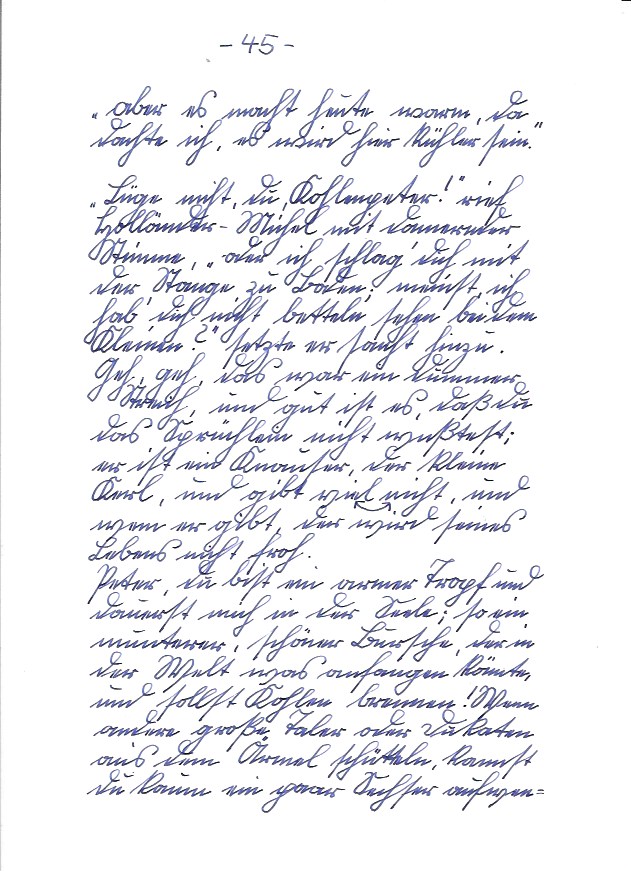 - 45 -
„aber es macht heute warm, da
dachte ich, es wird hier kühler sein."
„Lüge nicht, du Kohlenpeter!" rief
Holländer-Michel mit donnernder
Stimme, „oder ich schlag' dich mit
der Stange zu Boden; meinst, ich
hab' dich nicht betteln sehen bei dem
Kleinen?" setzte er sacht hinzu.
Geh, geh, das war ein dummer
Streich, und gut ist es, daß du
das Sprüchlein nicht wußtest;
er ist ein Knauser, der kleine
Kerl, und gibt viel nicht, und
wem er gibt, der wird seines
Lebens nicht froh.
Peter, du bist ein armer Tropf und
dauerst mich in der Seele; so ein
munterer, schöner Bursche, der in
der Welt was anfangen könnte,
und sollst Kohlen brennen! Wenn
andere große Taler oder Dukaten
aus dem Ärmel schütteln, kannst
du kaum ein paar Sechser aufwen=